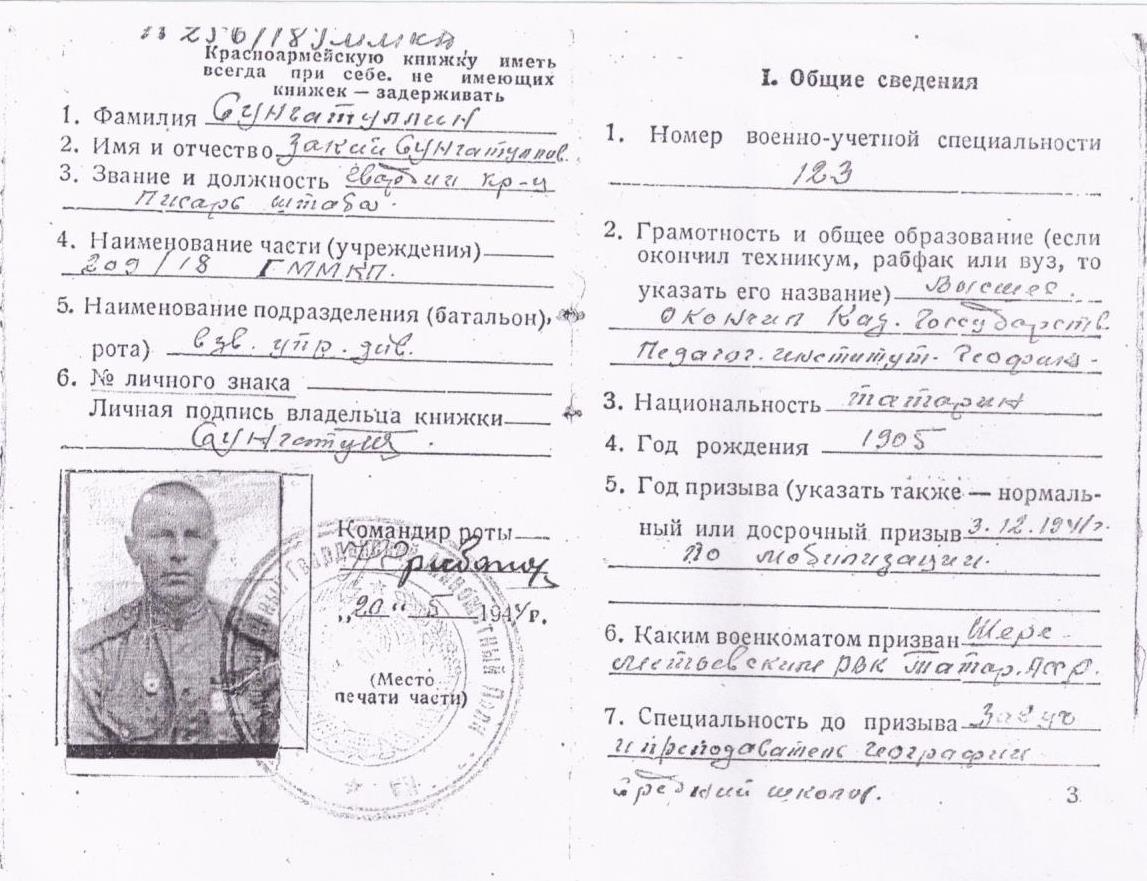 Красноармейскую книжку иметь
всегда при себе. не имеющих
книжек — задерживать
1. Фамилия Сунгатуллин
2. Имя и отчество Закий Сунгатуллов.
3. Звание и должность Гвардии кр-ц
Писарь штаба.
4. Наименование части (учреждения)
209/18 ГММКП.
5. Наименование подразделения (батальон),
рота) взв. упр. див.
6. № личного знака
Личная подпись владельца книжки
Сунгатулл
Командир роты
„20“ 5 1944г.
(Место
печати части)
I. Общие сведения
1. Номер военно-учетной специальности
123
2. Грамотность и общее образование (если
окончил техникум, рабфак или вуз, то
указать его название) Высшее.
Окончил Каз. Государств.
Педагог. институт. Геофак-
3. Национальность татарин
4. Год рождения 1905
5. Год призыва (указать также — нормаль-
ный или досрочный призыв 3.12.1941г.
По мобилизации.
6. Каким военкоматом призван Шере-
метьевским РВК Татар. АССР.
7. Специальность до призыва Завуч
и преподаватель географии
средний школы.
3